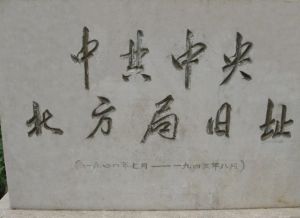 中共中央
北方局旧址
(一九四一年七月——一九四三年八月)